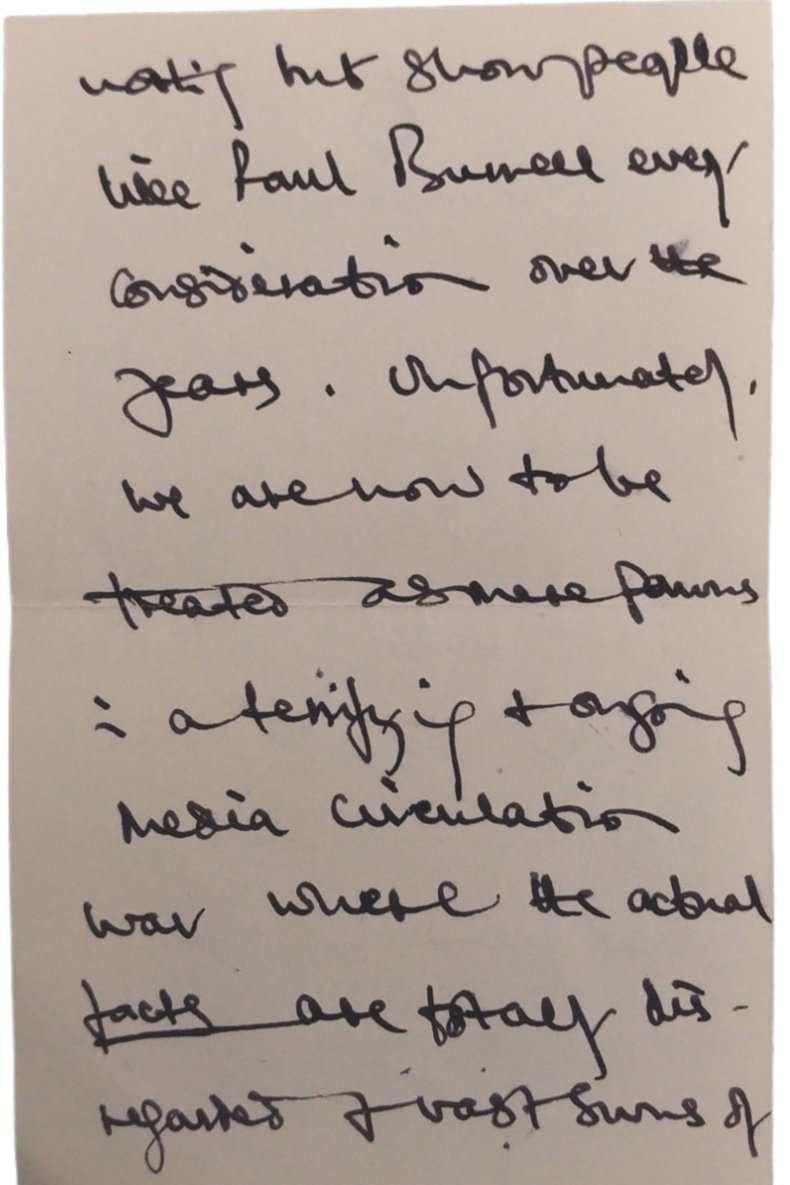 nothing but show people
like Paul Burrell every
consideration over the
years. Unfortunately,
we are now to be
treated as mere pawns
in a terrifying & ongoing
media circulation
war where the actual
facts are totally dis-
regarded & vast sums of